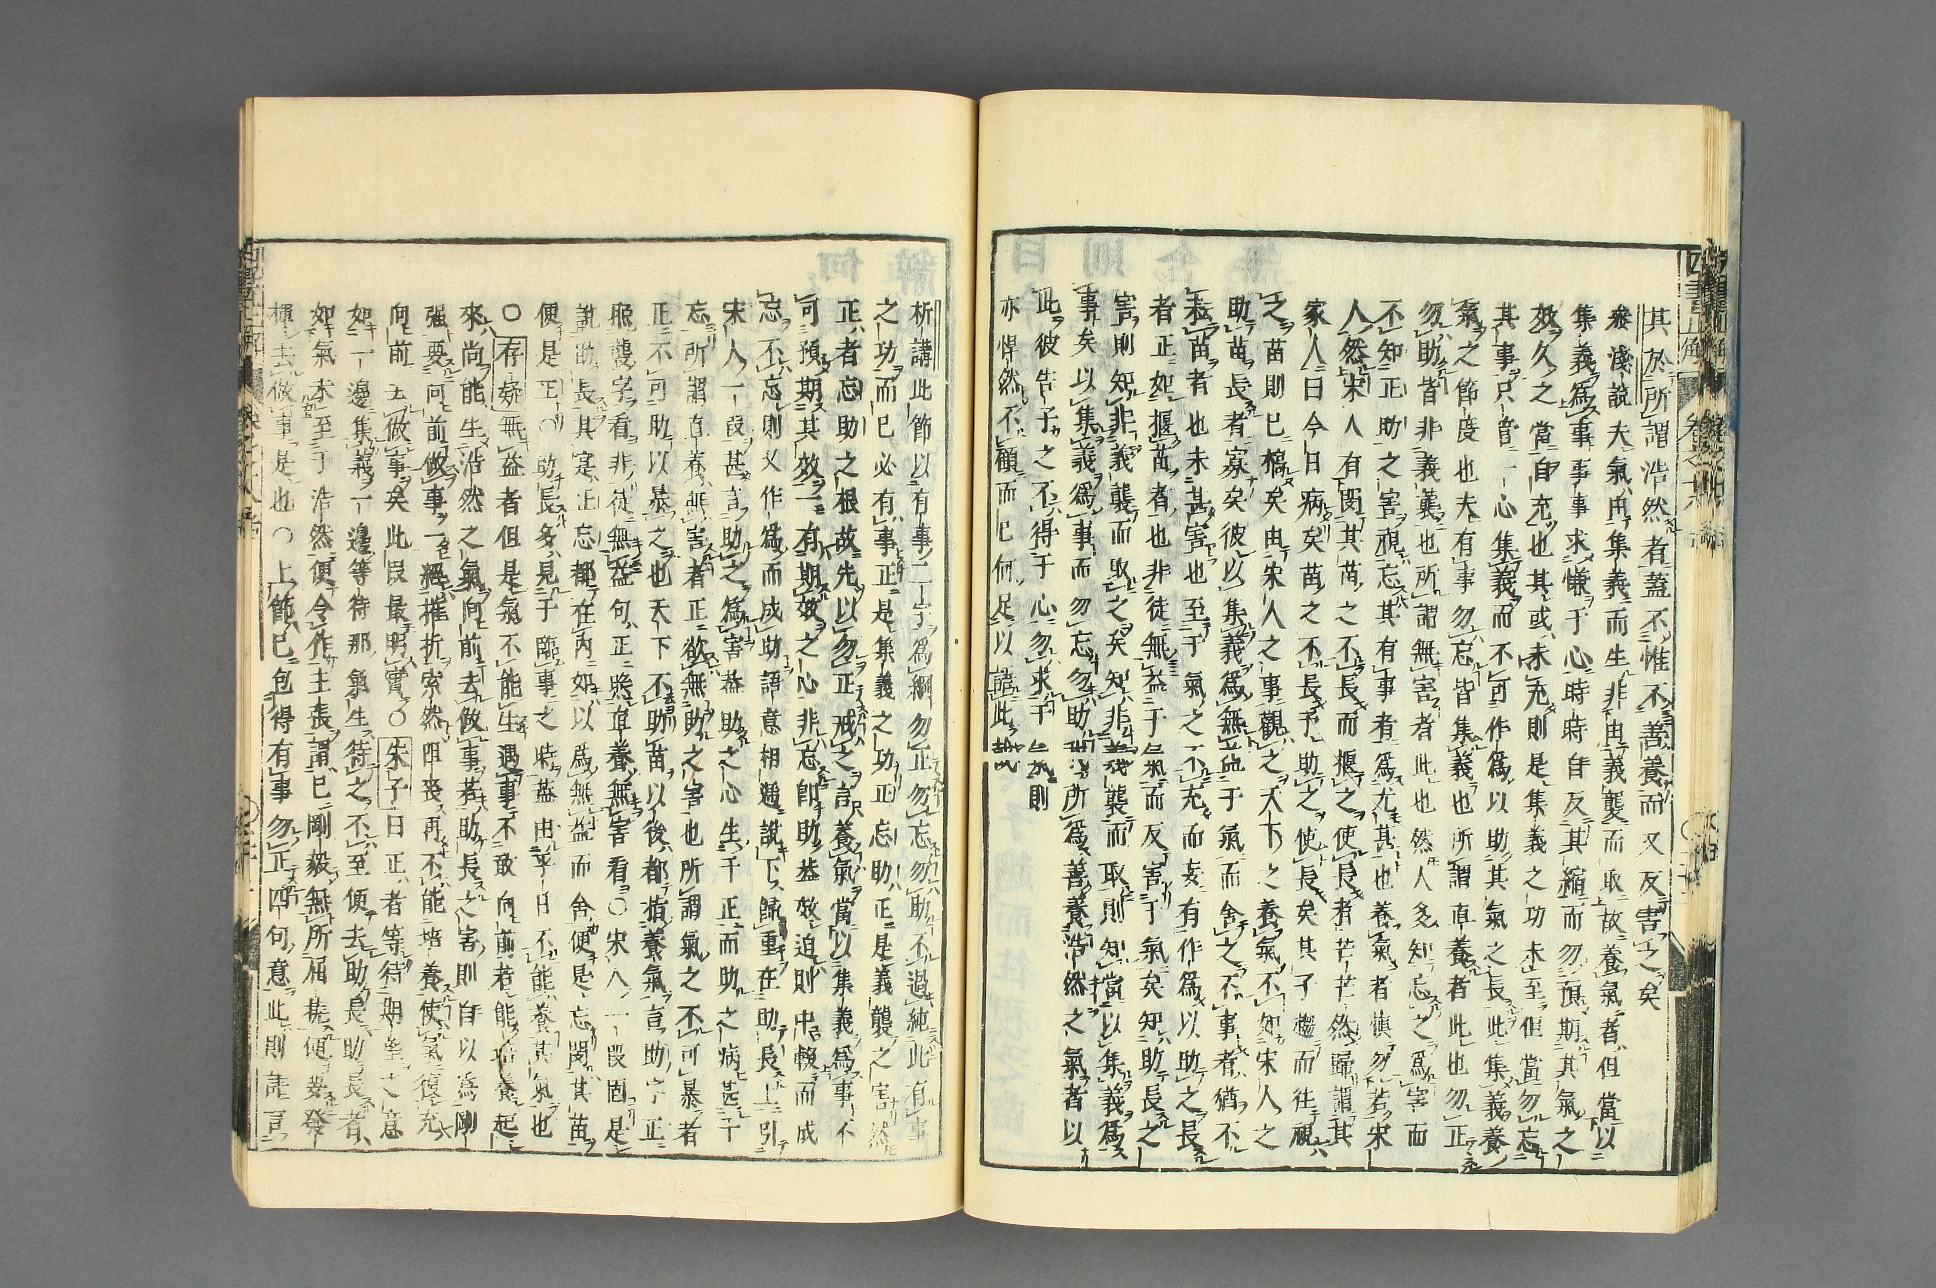 其於所謂浩然者蓋不惟不善養而又反害之矣
淺說夫氣由集義而生非由義襲而取故養氣者但當以
集義爲事事事求慊于心時時自反其縮而勿預期其氣之
效久之當自充也其或未充則是集義之功未至但當勿忘
其事只管一心集義而不可作爲以助其氣之長此集義養
氣之節度也夫有事勿忘皆集義也所謂直養者此也勿正
勿助皆非義襲也所謂無害者此也然人多知忘之爲害而
不知正助之害視忘其有事者爲尤甚也養氣者慎勿若宋
人然宋人有閔其苗之不長而揠之使長者芒芒然歸謂其
家人曰今日病矣苗之不長予助之使長矣其子趨而往視
之苗則已槁矣由宋人之事觀之天下之養氣不如宋人之
助苗長者寡矣彼以集義爲無益于氣而舍之不事者猶不
耘苗者也未甚害也至于氣之不充而妄有作爲以助之長
者正如揠苗者也非徒無益于氣而反害于氣矣知助長之
害則知非義襲而取之矣知非義襲而取則知當以集義爲
事矣以集義爲事而勿忘勿助所爲善養浩然之氣者以
此彼告子之不得于心勿求于氣則
亦悍然不顧而已何足以語此哉
析講此節以有事二字爲綱勿正勿忘勿助不過純此有事
之功而已必有事正是集義之功正忘助正是義襲之害然
正者忘助之根故先以勿正戒之言養氣當以集義爲事不
可預期其效一有期效之心非忘卽助蓋效迫則中輟而成
忘不忘則又作爲而成助語意相遞說下歸重在助長上引
宋人一段甚言助之爲害蓋助之心生于正而助之病甚于
忘所謂直養無害者正欲無助之害也所謂氣之不可暴者
正不可助以暴之也天下不助苗以後都指養氣言助字正
照襲字看非徒無益句正與直養無害看○宋人一段固是
說助長其寔正忘都在內如以爲無益而舍便是忘閔其苗
便是正○助長多見于臨事之時蓋由平日不能養其氣也
○存疑無益者但是氣不能生遇事不敢向前者能培養起
來尚能生浩然之氣向前去做事若助長之害則自以爲剛
强要向前做事一經摧折索然阻喪再不能培養使氣復充
向前去做事矣此段最明實○朱子曰正者等待期望之意
如一邊集義一邊等待那氣生待之不至便去助長助長者
如氣未至于浩然便令作主張謂已剛毅無所屈撓便要發
揮去做事是也○上節已包得有事勿正四句意此則詳言